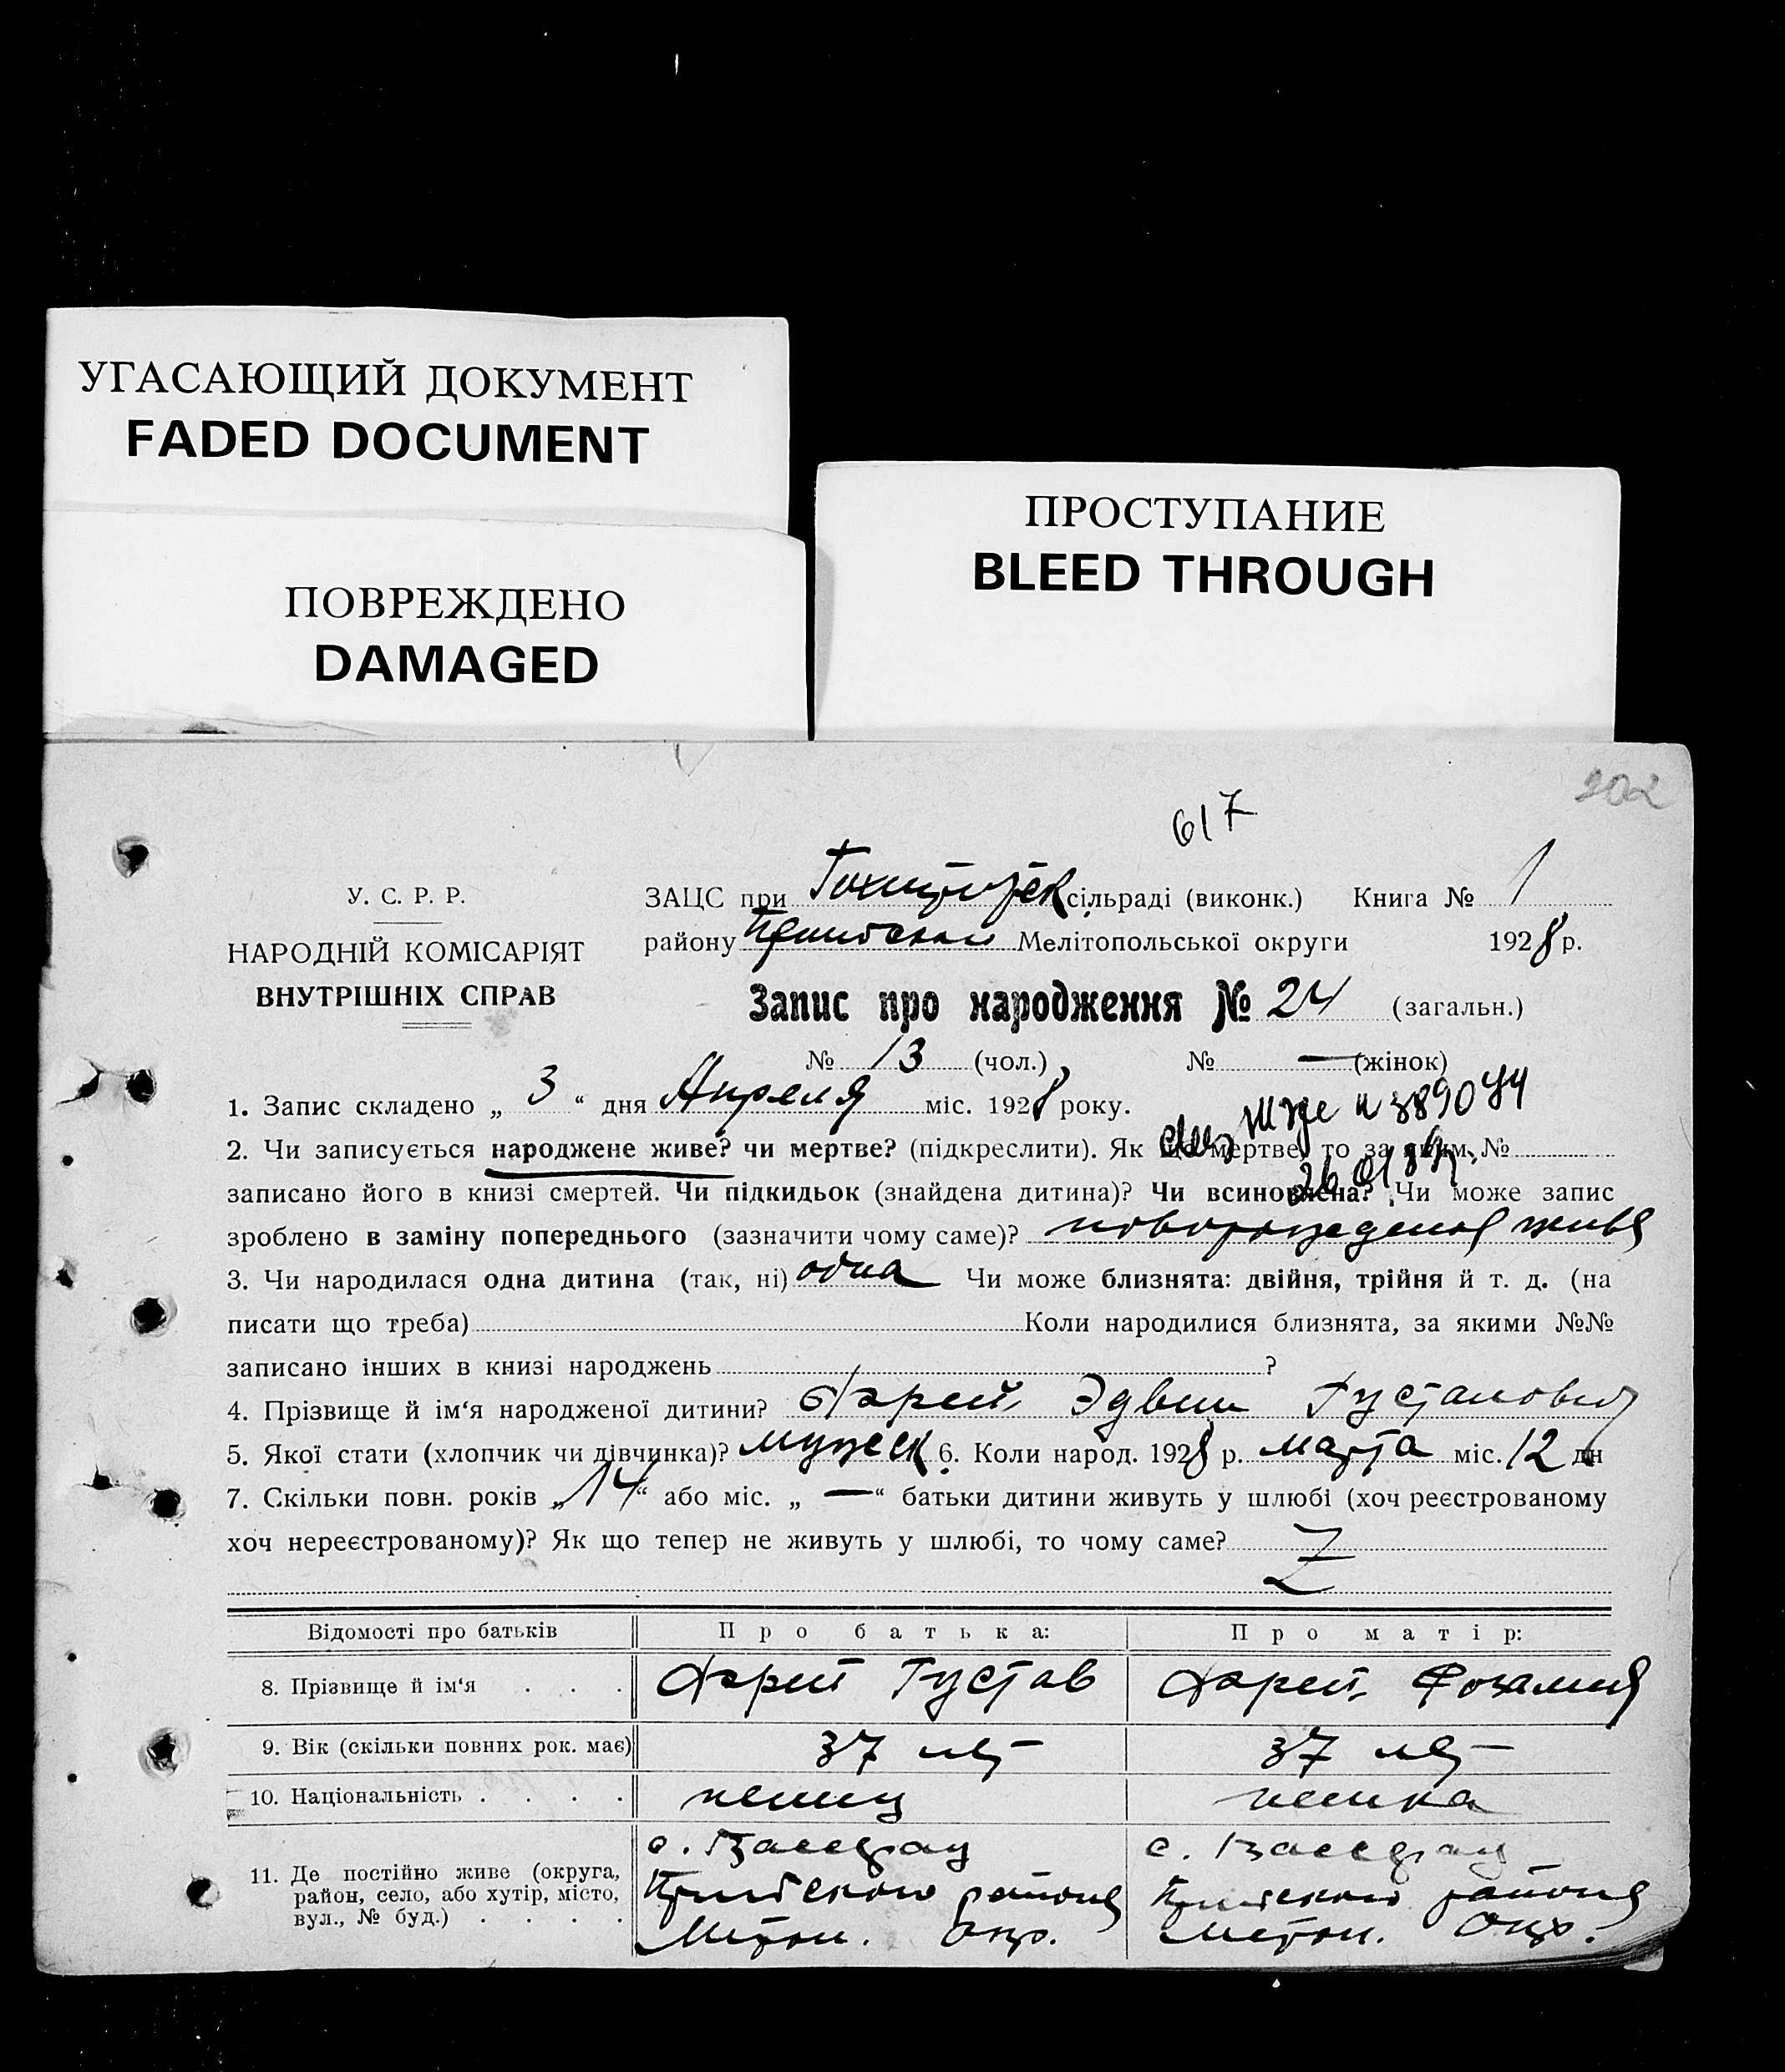 УГАСАЮЩИЙ ДОКУМЕНТ
FADED DOCUMENT
ПОВРЕЖДЕНО
DAMAGED
ПРОСТУПАНИЕ
BLEED THROUGH
202
617
У. С. Р. Р.
НАРОДНІЙ КОМІСАРІЯТ
ВНУТРІШНІХ СПРАВ
ЗАЦС при сільраді (виконк.) Книга № 1
району Мелітопольської округи 1928 р.
Запис про народження № 24 (загальн.)
№ 13 (чол.) № — (жінок)
1. Запис складено „ 3 “ дня Апреля міс. 1928 року.
2. Чи записується народжене живе? чи мертве? (підкреслити). Як що мертве, то за яким №
записано його в книзі смертей. Чи підкидьок (знайдена дитина)? Чи всиновлена? Чи може запис
зроблено в заміну попереднього (зазначити чому саме)? новорожденая живая
3. Чи народилася одна дитина (так, ні) одна Чи може близнята: двійня, трійня й т. д. (на
писати що треба) Коли народилися близнята, за якими №№
записано інших в книзі народжень ?
4. Прізвище й ім‘я народженої дитини? Эдвин Густавович
5. Якої стати (хлопчик чи дівчинка)? мужеск 6. Коли народ. 1928 р. марта міс. 12 дн
7. Скільки повн. років „ 14 “ або міс. „ — “ батьки дитини живуть у шлюбі (хоч реєстрованому
хоч нереєстрованому)? Як що тепер не живуть у шлюбі, то чому саме? Z
Відомості про батьків Про батька: Про матір:
8. Прізвище й ім‘я . . . Густав
9. Вік (скільки повних рок. має) 37 лет 37 лет
10. Національність . . . . немец немка
11. Де постійно живе (округа,
район, село, або хутір, місто,
вул., № буд.) . . . .
с. с.
района района
Мелітоп. Окр. Мелітоп. Окр.